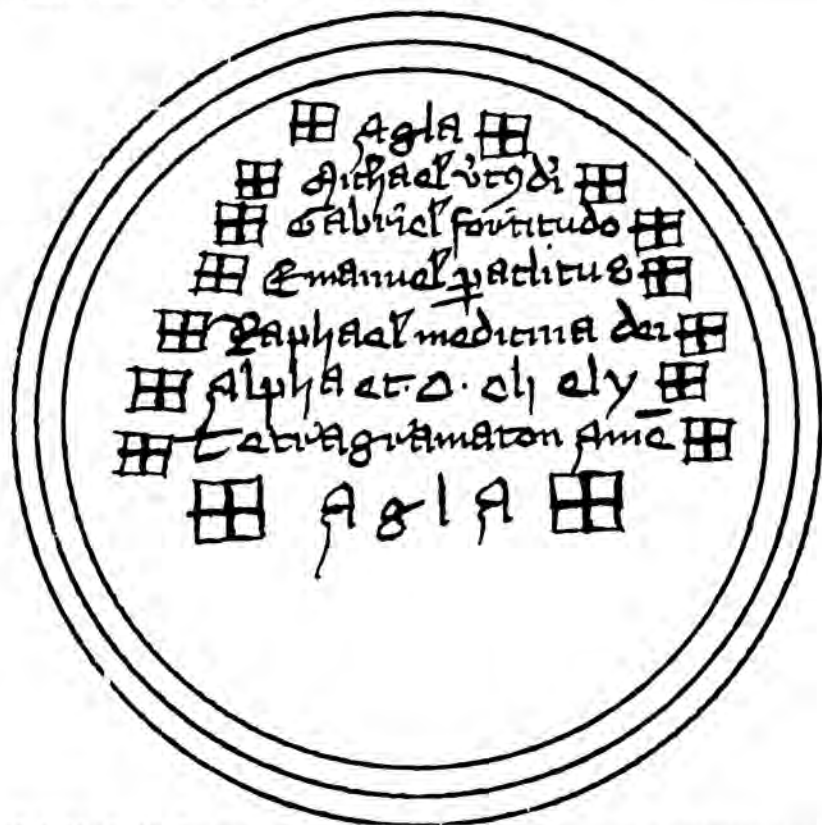 Agla
Michael v̄t9 di
Gabriel fortitudo
Emanuel paclitus
Raphael medicina dei
Alpha et · O · ely ely
Tetragramaton amē
Agla